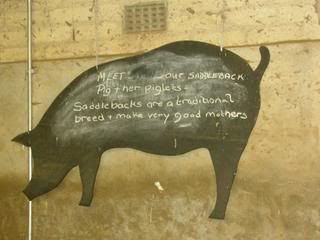 MEET our SADDLEBACK
Pig + her piglets -
Saddlebacks are a traditional
breed + make very good mothers